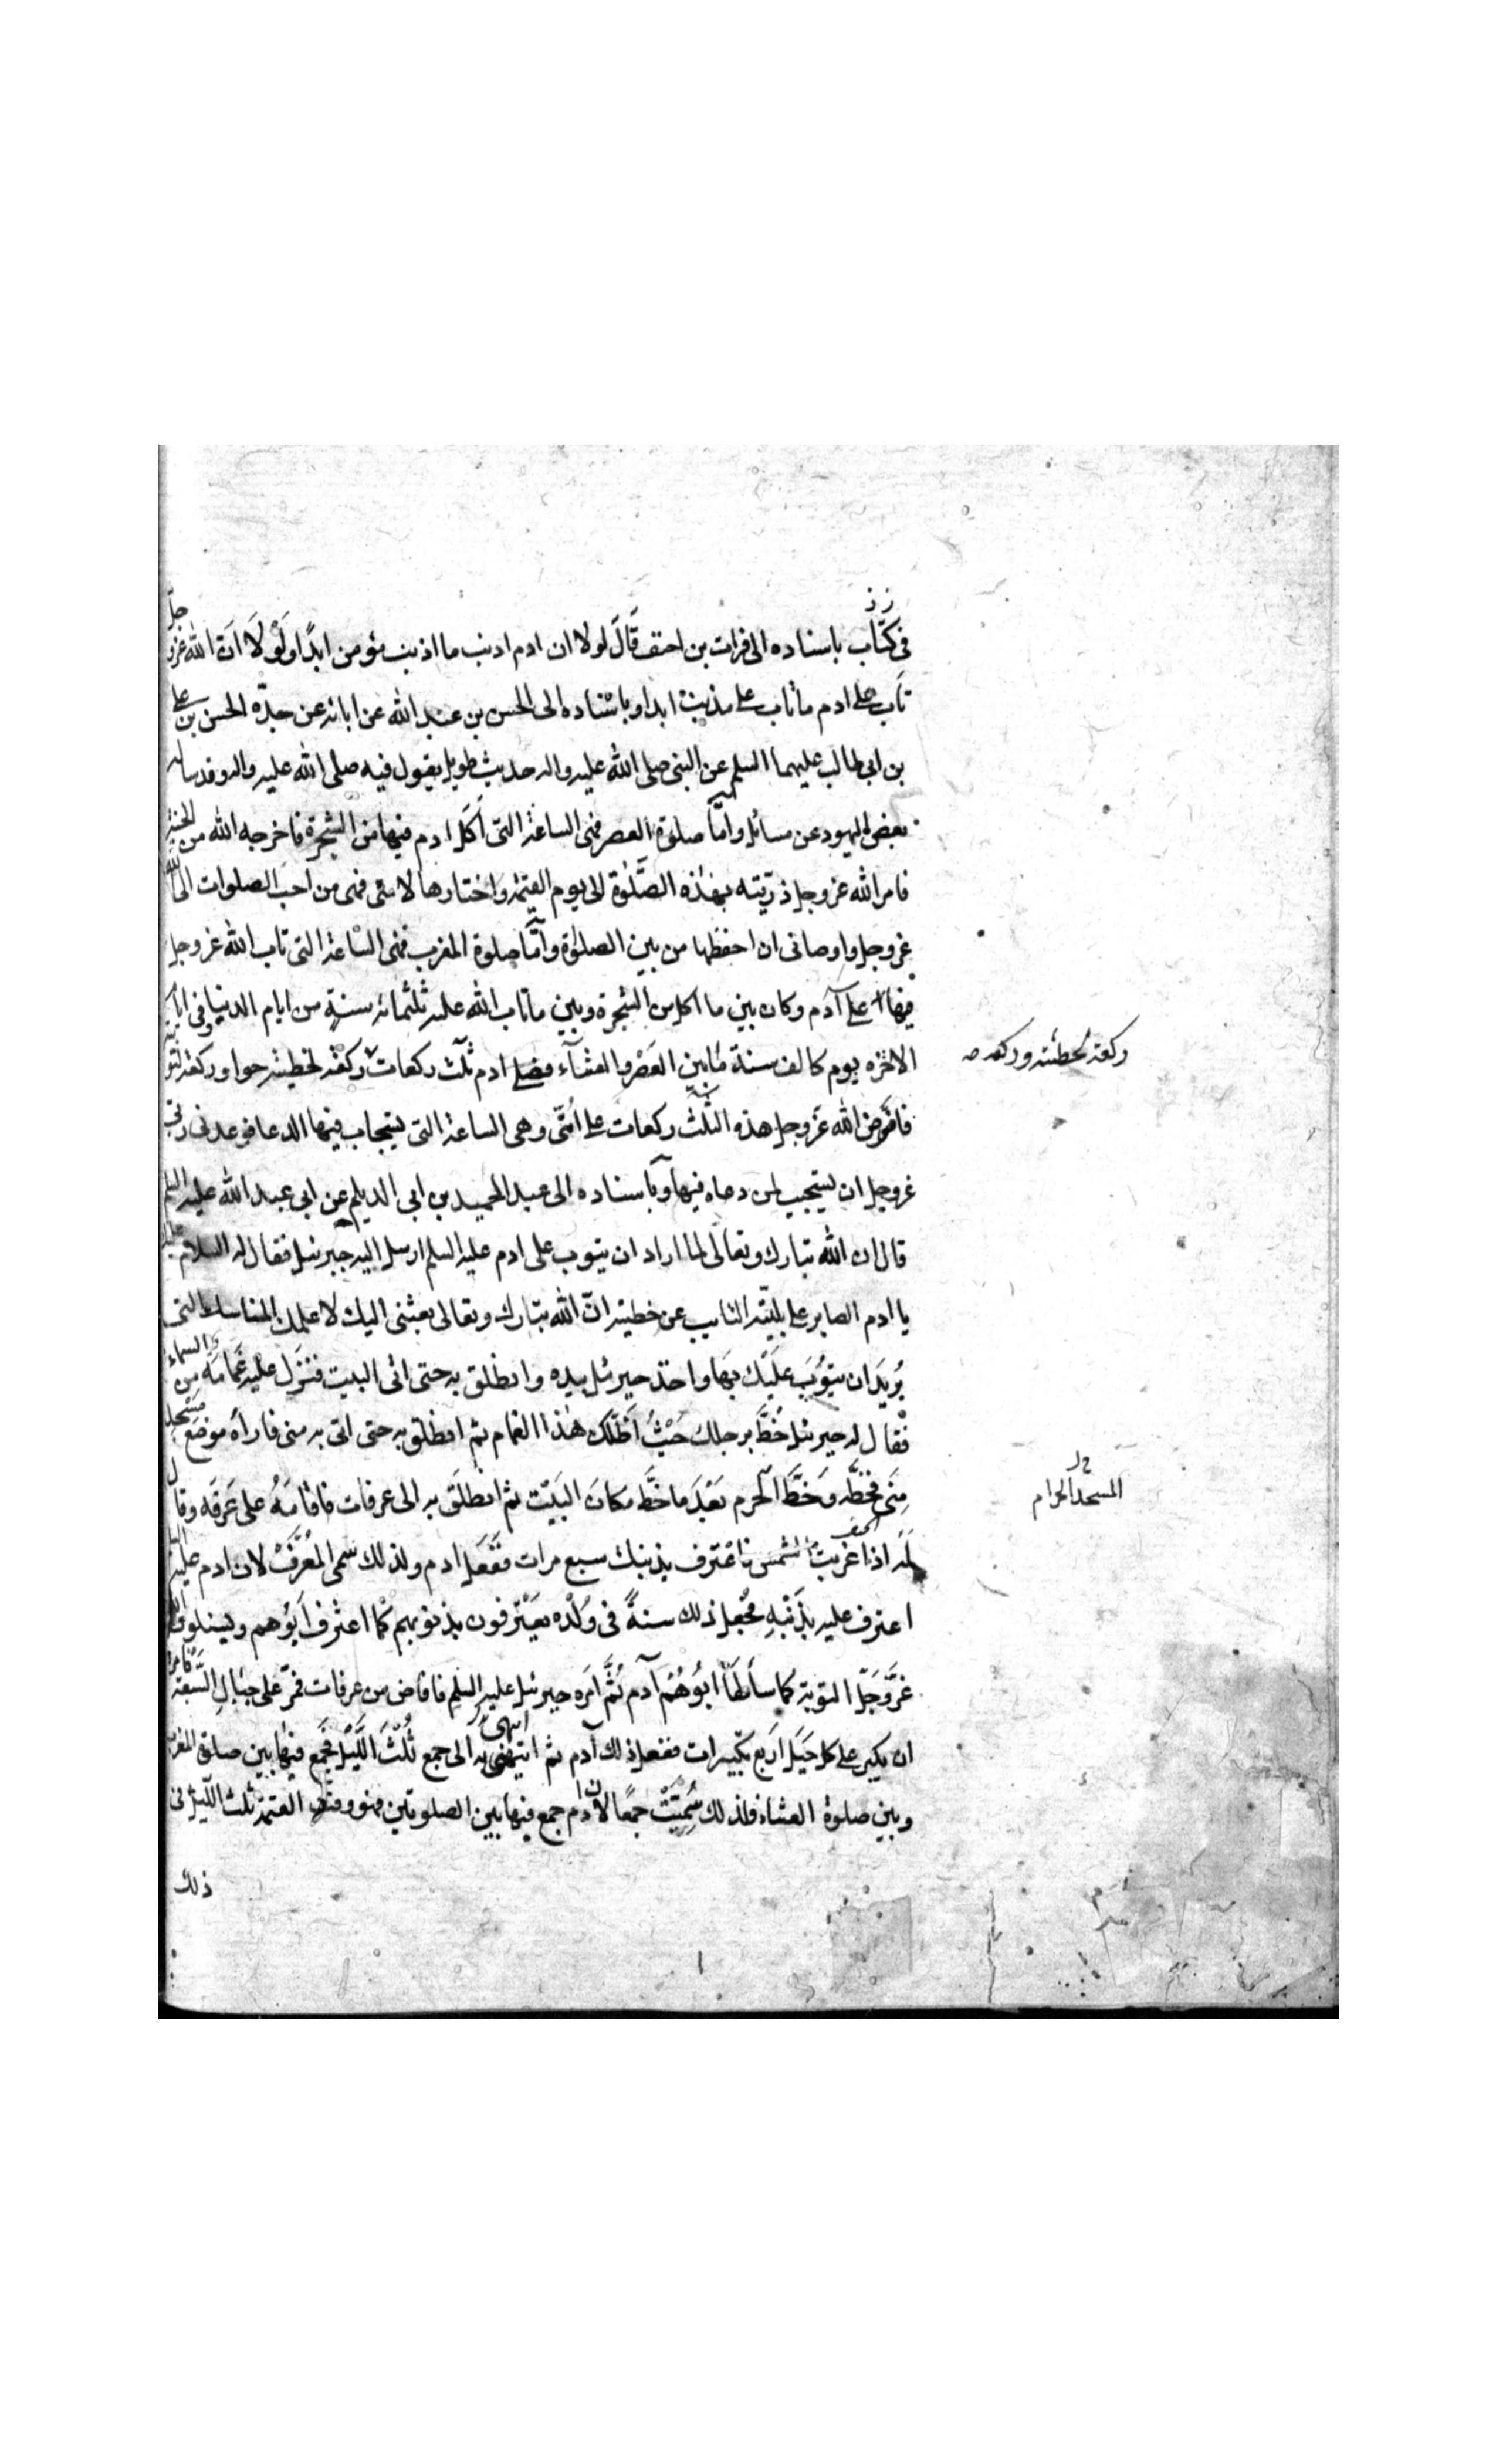 في كتاب باسناده الى فرات بن احنف قَالَ لولا ان ادم اذنب ما اذنب مؤمن ابدًا ولَوْلَا انَّ الله عزو جلّ
تابَ على ادم ما تاب على مذنبٍ ابدا وباسْناده الى الحسن بن عبد الله عن ابائه عن جدّه الحسن بن على
بن ابى طالب عليهما السلم عن النبى صلى الله عليه واله حديث طويل يقول فيه صلى الله عليه واله وقد ساله
بعض اليهود عن مسائل وامّا صلوة العصر فهى الساعة التى اكل ادم فيها من الشجرة فاخرجه الله من الجنة
فامر الله عز وجل ذرّيّته بهذه الصَّلوٰة الى يوم القيمة واختارها لامتى فهى من احب الصلوات الى الله
عز وجل واوصانى ان احفظها من بين الصلوٰة وامّا صلوة المغرب فهى السّاعة التى تاب الله عز وجل
فيها على آدم وكان بين ما اكل من الشجرة وبين ما تاب الله عليه ثلثمائة سنةٍ من ايام الدنيا وفى ايام
الاخرة يوم كالف سنة مابين العَصْر والعشآء فصلى ادم ثلٰث ركعات ركعَةً لخطيئته حوا وركعة لتوبته
ركعة لخطيئته وركعة صه
فافترض الله عَزّ وجل هذه الثلٰث ركعات على اُمّتى وهى الساعة التى يستجاب فيها الدعا فوعدنى ربى
عز وجل ان يستجيب لمن دعاه فيها وباسناده الى عبد الحميد بن ابى الديلم عن ابى عبد الله عليه السلم
قال ان الله تبارك وتعالى لما اراد ان يتوب على ادم عليه السلم ارسل اليه جبرئيل فقال له السلام عليك
يا ادم الصابر على بليّته التايب عن خطيئته انّ الله تبارك وتعالى بعثنى اليك لاعلمك المناسك التى
يُريدُ ان يتوُبَ عَليْك بهَا واخذ جبرئيل بيده وانطلق به حتى اتى البيت فنَزَل عليه غَمَامَةٌ مِن السماء
فقال له جبرئيل خُطَّ برجلك حَيْثُ اَظَلّك هٰذا الغمام ثم انطلق به حتى اتى به منى فاراهُ موضِعَ مَسْجد
مِنى فخَطَّه وَخَطَّ الحَرم بَعْدَ مَا خَطَّ مكانَ البَيْت ثم انطلَقَ به الى عرفات فاقامَهُ على عَرَفَه وقال
المسجد الحرام
لَهُ اذا غربت الشمس فاعْترف بذنبك سبع مرات فَفَعَل ادم ولذلك سمى المُعَرَّف لان ادم عليه السلم
اعترف عليه بذَنْبِهِ فجُعِل ذلك سنةً فى وُلْدِه يَعْتَرفون بذنوبهم كمَا اعترف اَبُوهم ويسئلون الله
عَزَّوَجَلّ التوبة كما سأَلهَا ابُوهُمْ آدم ثُمَّ امَره جبرئيل عليه السلم فافاض من عرفات فمَرّ على جبَالِ السَّبْعَة فامره
ان يكبر على كل جَبَل اَربع تكبيرات ففعل ذلك آدم ثم انتهى به الى جمع ثُلُثَ اللّيْل فجَمَع فيهَا بين صلوة المغرب
وبين صلوة العشاء فلذلك سُمِيَتْ جمْعًا لان ادم جمع فيها بين الصلوتين فهو وقت العتمة ثلث اللّيل فى
ذلك